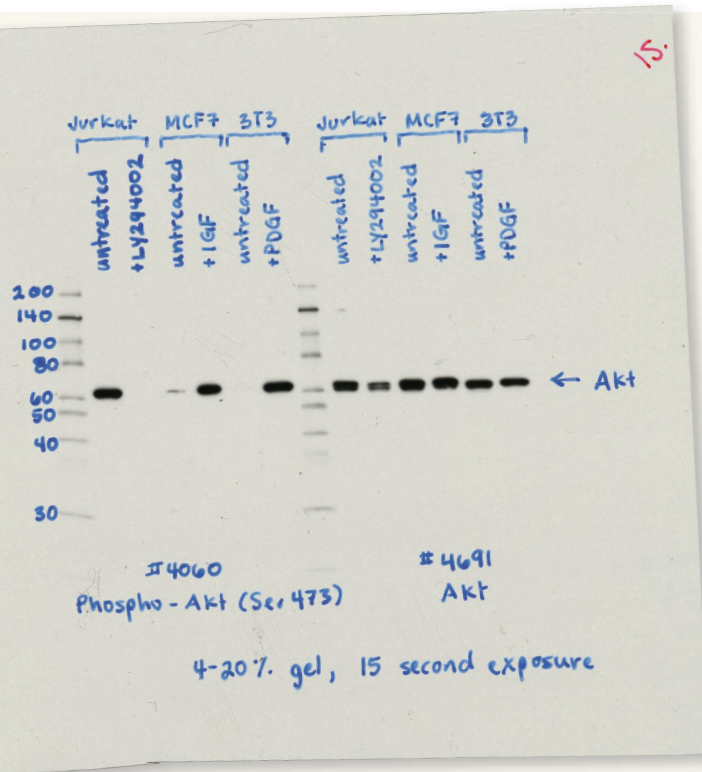 15.
Jurkat MCF7 3T3 Jurkat MCF7 3T3
untreated
+LY294002
untreated
+IGF
untreated
+PDGF
untreated
+LY294002
untreated
+IGF
untreated
+PDGF
200
140
100
80
60
50
40
30
← Akt
#4060
Phospho-Akt (Ser 473)
#4691
Akt
4-20% gel, 15 second exposure